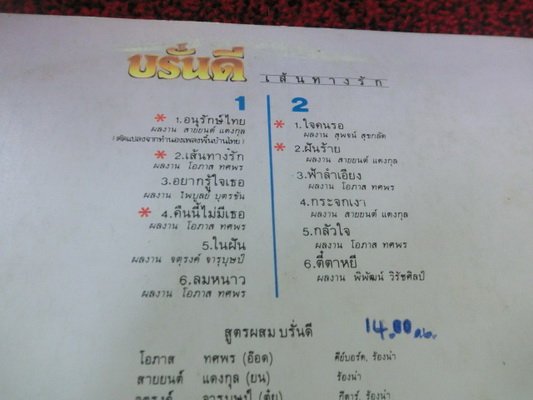 บรั่นดี เส้นทางรัก
1
* 1.อนุรักษ์ไทย
ผลงาน สายยนต์ แดงกุล
(ดัดแปลงจากทำนองเพลงพื้นบ้านไทย)
* 2.เส้นทางรัก
ผลงาน โอภาส ทศพร
3.อยากรู้ใจเธอ
ผลงาน ไพบูลย์ บุตรขัน
* 4.คืนนี้ไม่มีเธอ
ผลงาน โอภาส ทศพร
5.ในฝัน
ผลงาน จตุรงค์ จารุบุษป์
6.ลมหนาว
ผลงาน โอภาส ทศพร
2
* 1.ใจคนรอ
ผลงาน สุพจน์ สุขกลัด
* 2.ฝันร้าย
ผลงาน สายยนต์ แดงกุล
3.ฟ้าลำเอียง
ผลงาน โอภาส ทศพร
4.กระจกเงา
ผลงาน สายยนต์ แดงกุล
5.กลัวใจ
ผลงาน โอภาส ทศพร
6.ตี๋ตาหยี
ผลงาน พิพัฒน์ วิรัชศิลป์
สูตรผสม บรั่นดี 14.00
โอภาส ทศพร (อ๊อด) คีย์บอร์ด, ร้องนำ
สายยนต์ แดงกุล (ยน) ร้องนำ
จตุรงค์ จารุบุษป์ (ตุ้ย) กีตาร์, ร้องนำ